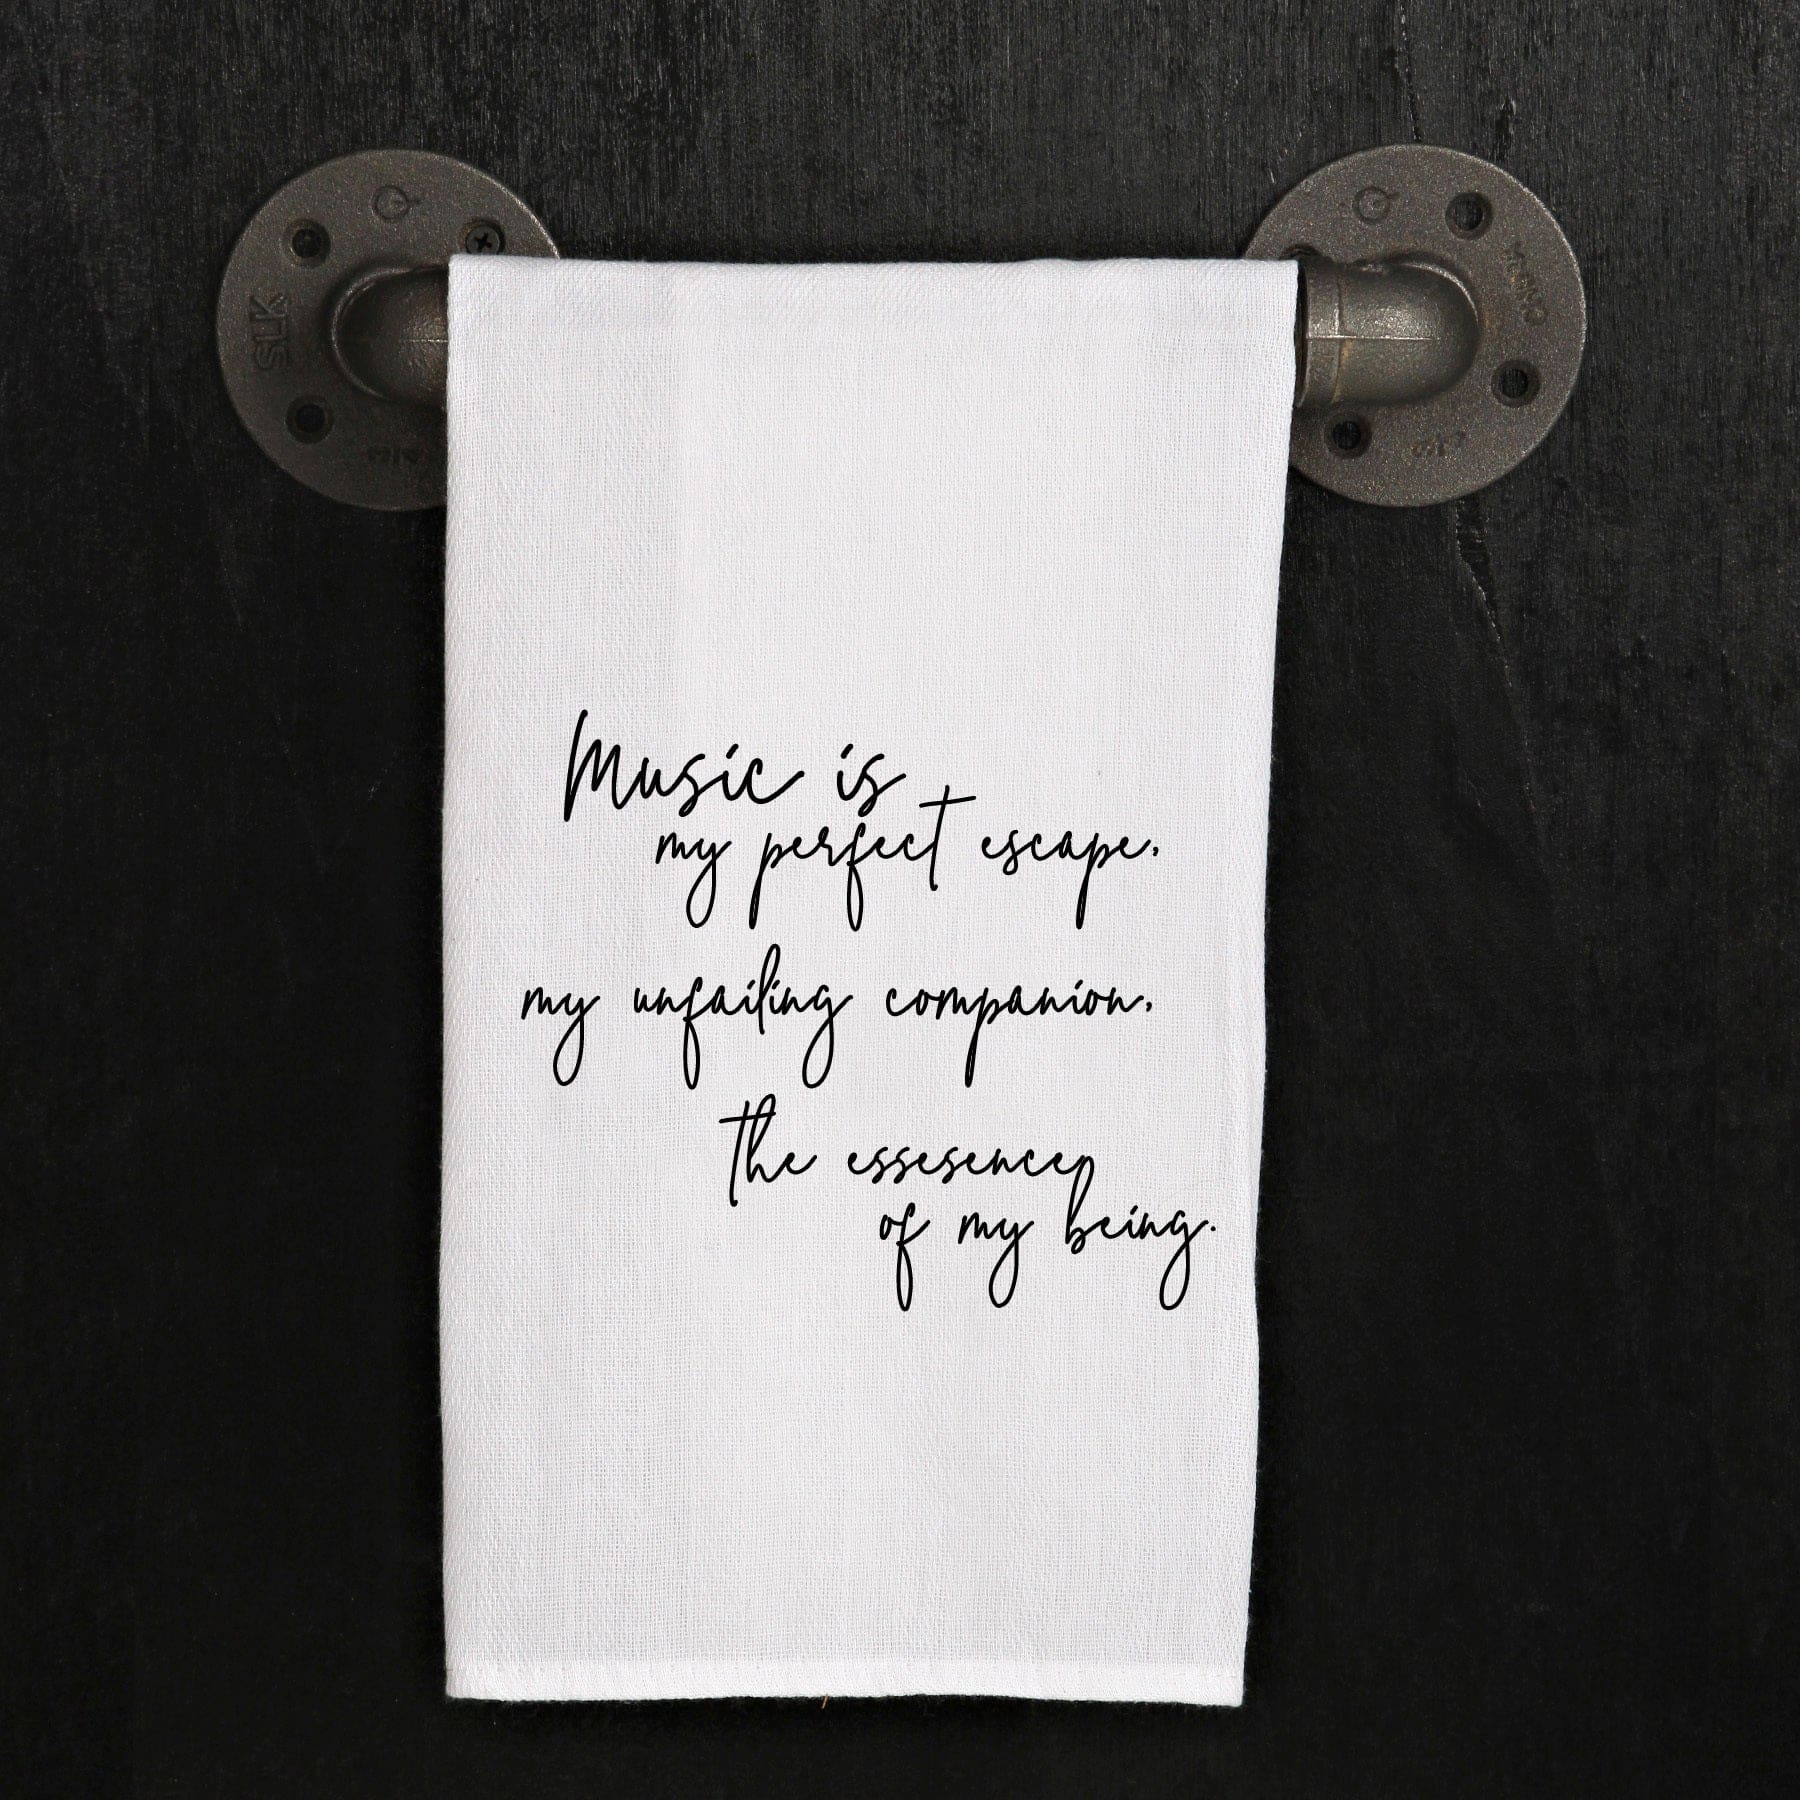 SLK
CHINA
Music is
my perfect escape,
my unfailing companion,
the essesence
of my being.